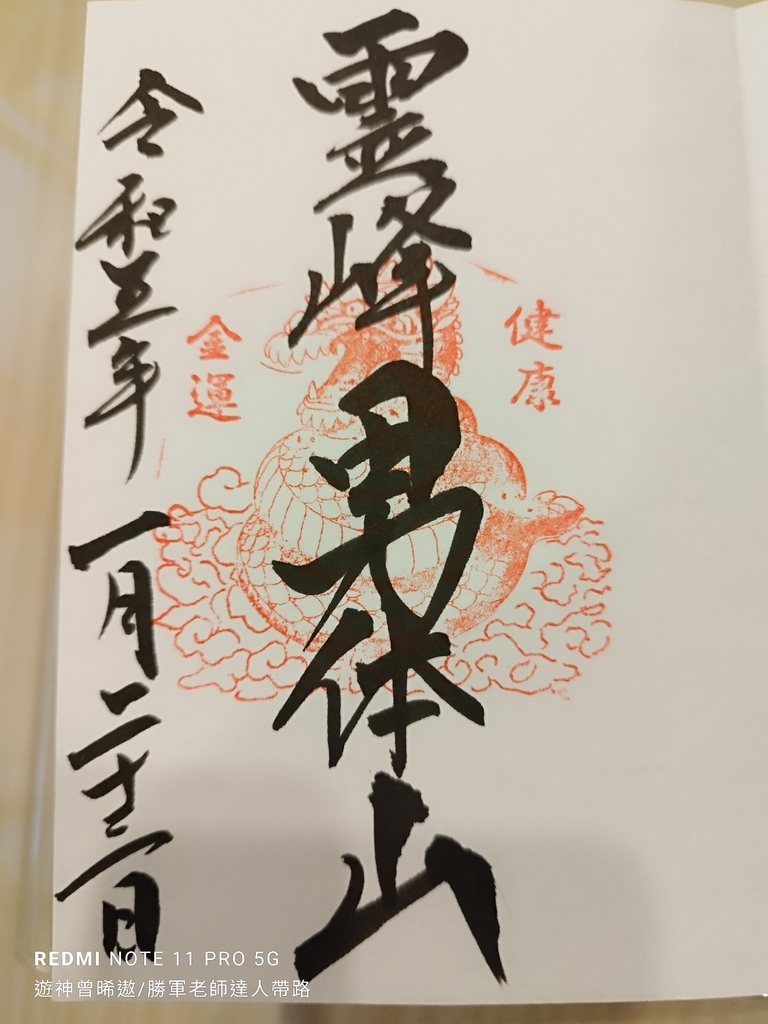 霊峰男体山
健康
金運
令和五年一月二十二日
REDMI NOTE 11 PRO 5G
遊神曾晞遨/勝軍老師達人帶路